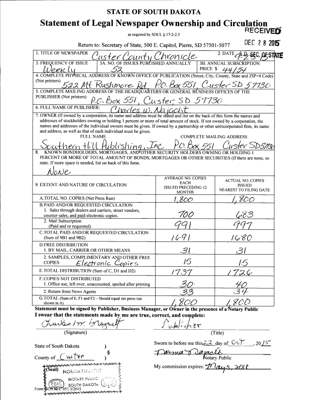 STATE OF SOUTH DAKOTA
Statement of Legal Newspaper Ownership and Circulation
as required by SDCL § 17-2-2.5
RECEIVED
DEC 28 2015
Return to: Secretary of State, 500 E. Capitol, Pierre, SD 57501-5077
S.D. SEC. OF STATE
1. TITLE OF NEWSPAPER
Custer County Chronicle
2. DATE
3. FREQUENCY OF ISSUE
Weekly
3A. NO. OF ISSUES PUBLISHED ANNUALLY
52
3B. ANNUAL SUBSCRIPTION PRICE $
4. COMPLETE MAILING ADDRESS OF KNOWN OFFICE OF PUBLICATION (Street, City, County, State and ZIP+4 Code) (Not printers)
522 Mt Rushmore Rd P.O. Box 551 Custer SD 57730
5. COMPLETE MAILING ADDRESS OF THE HEADQUARTERS OR GENERAL BUSINESS OFFICES OF THE PUBLISHER (Not printers)
P.O. Box 551, Custer SD 57730
6. FULL NAME OF PUBLISHER
Charles W. Najacht
7. OWNER (If owned by a corporation, its name and address must be stated and list on the back of this form the names and addresses of stockholders owning or holding 1 percent or more of total amount of stock. If not owned by a corporation, the names and addresses of the individual owners must be given. If owned by a partnership or other unincorporated firm, its name and address, as well as that of each individual must be given.
FULL NAME
COMPLETE MAILING ADDRESS
Southern Hills Publishing, Inc. P.O. Box 551 Custer SD 57730
8. KNOWN BONDHOLDERS, MORTGAGES, AND OTHER SECURITY HOLDERS OWNING OR HOLDING 1 PERCENT OR MORE OF TOTAL AMOUNT OF BONDS, MORTGAGES OR OTHER SECURITIES (If there are none, so state. If more space is needed, list on back of this form).
None
9. EXTENT AND NATURE OF CIRCULATION
AVERAGE NO. COPIES EACH ISSUED PRECEDING 12 MONTHS
ACTUAL NO. COPIES ISSUED NEAREST TO FILING DATE
A. TOTAL NO. COPIES (Net Press Run)
1,800
1,800
B. PAID AND/OR REQUESTED CIRCULATION
1. Sales through dealers and carriers, street vendors, counter sales, and paid electronic copies.
700
683
2. Mail Subscription (Paid and or requested)
991
997
C. TOTAL PAID AND/OR REQUESTED CIRCULATION (Sum of 9B1 and 9B2)
1691
1680
D. FREE DISTRIBUTION
1. BY MAIL, CARRIER OR OTHER MEANS
31
31
2. SAMPLES, COMPLIMENTARY AND OTHER FREE COPIES
Electronic Copies
15
15
E. TOTAL DISTRIBUTION (Sum of C, D1 and D2)
1737
1726
F. COPIES NOT DISTRIBUTED
1. Office use, left over, unaccounted, spoiled after printing
30
40
2. Return from News Agents
33
34
G. TOTAL (Sum of E, F1 and F2 – Should equal net press run shown in A)
1,800
1,800
Statement must be signed by Publisher, Business Manager, or Owner in the presence of a Notary Public
I swear that the statements made by me are true, correct, and complete:
Publisher
(Signature)
(Title)
State of South Dakota )
§
County of Custer )
Sworn to before me this 23 day of Oct 2015
Notary Public
My commission expires:
NOTARY PUBLIC
SOUTH DAKOTA